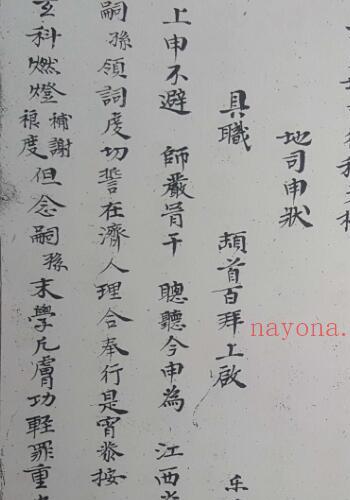 地司申状
具職　頏首百拜上啟
上申不避　師嚴冐干　聰聽今申為　江西
嗣孫領詞虔切誓在濟人理合奉行是宵叅按
玄科燃燈補謝禳度但念嗣孫末學凡膚功輕罪重
nayona.